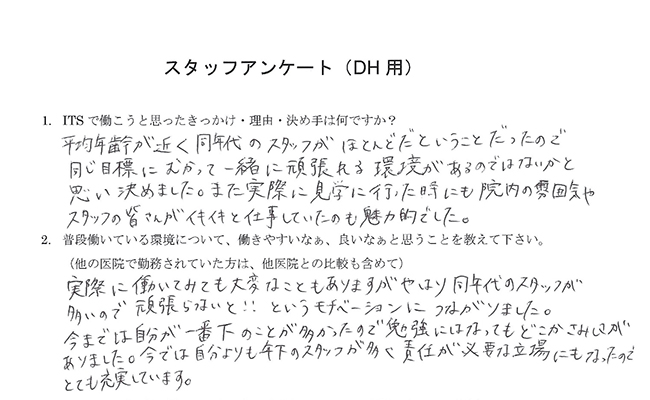 スタッフアンケート（DH 用）
1. ITS で働こうと思ったきっかけ・理由・決め手は何ですか？
平均年齢が近く同年代のスタッフがほとんどだということだったので
同じ目標にむかって一緒に頑張れる環境があるのではないかと
思い決めました。また実際に見学に行った時にも院内の雰囲気や
スタッフの皆さんがイキイキと仕事していたのも魅力的でした。
2. 普段働いている環境について、働きやすいなぁ、良いなぁと思うことを教えて下さい。
（他の医院で勤務されていた方は、他医院との比較も含めて）
実際に働いてみても大変なこともありますがやはり同年代のスタッフが
多いので頑張らないと!!というモチベーションにつながりました。
今までは自分が一番下のことが多かったので勉強にはなってもどこかさみしさが
ありました。今では自分よりも年下のスタッフが多く責任が必要な立場にもなったので
とても充実しています。